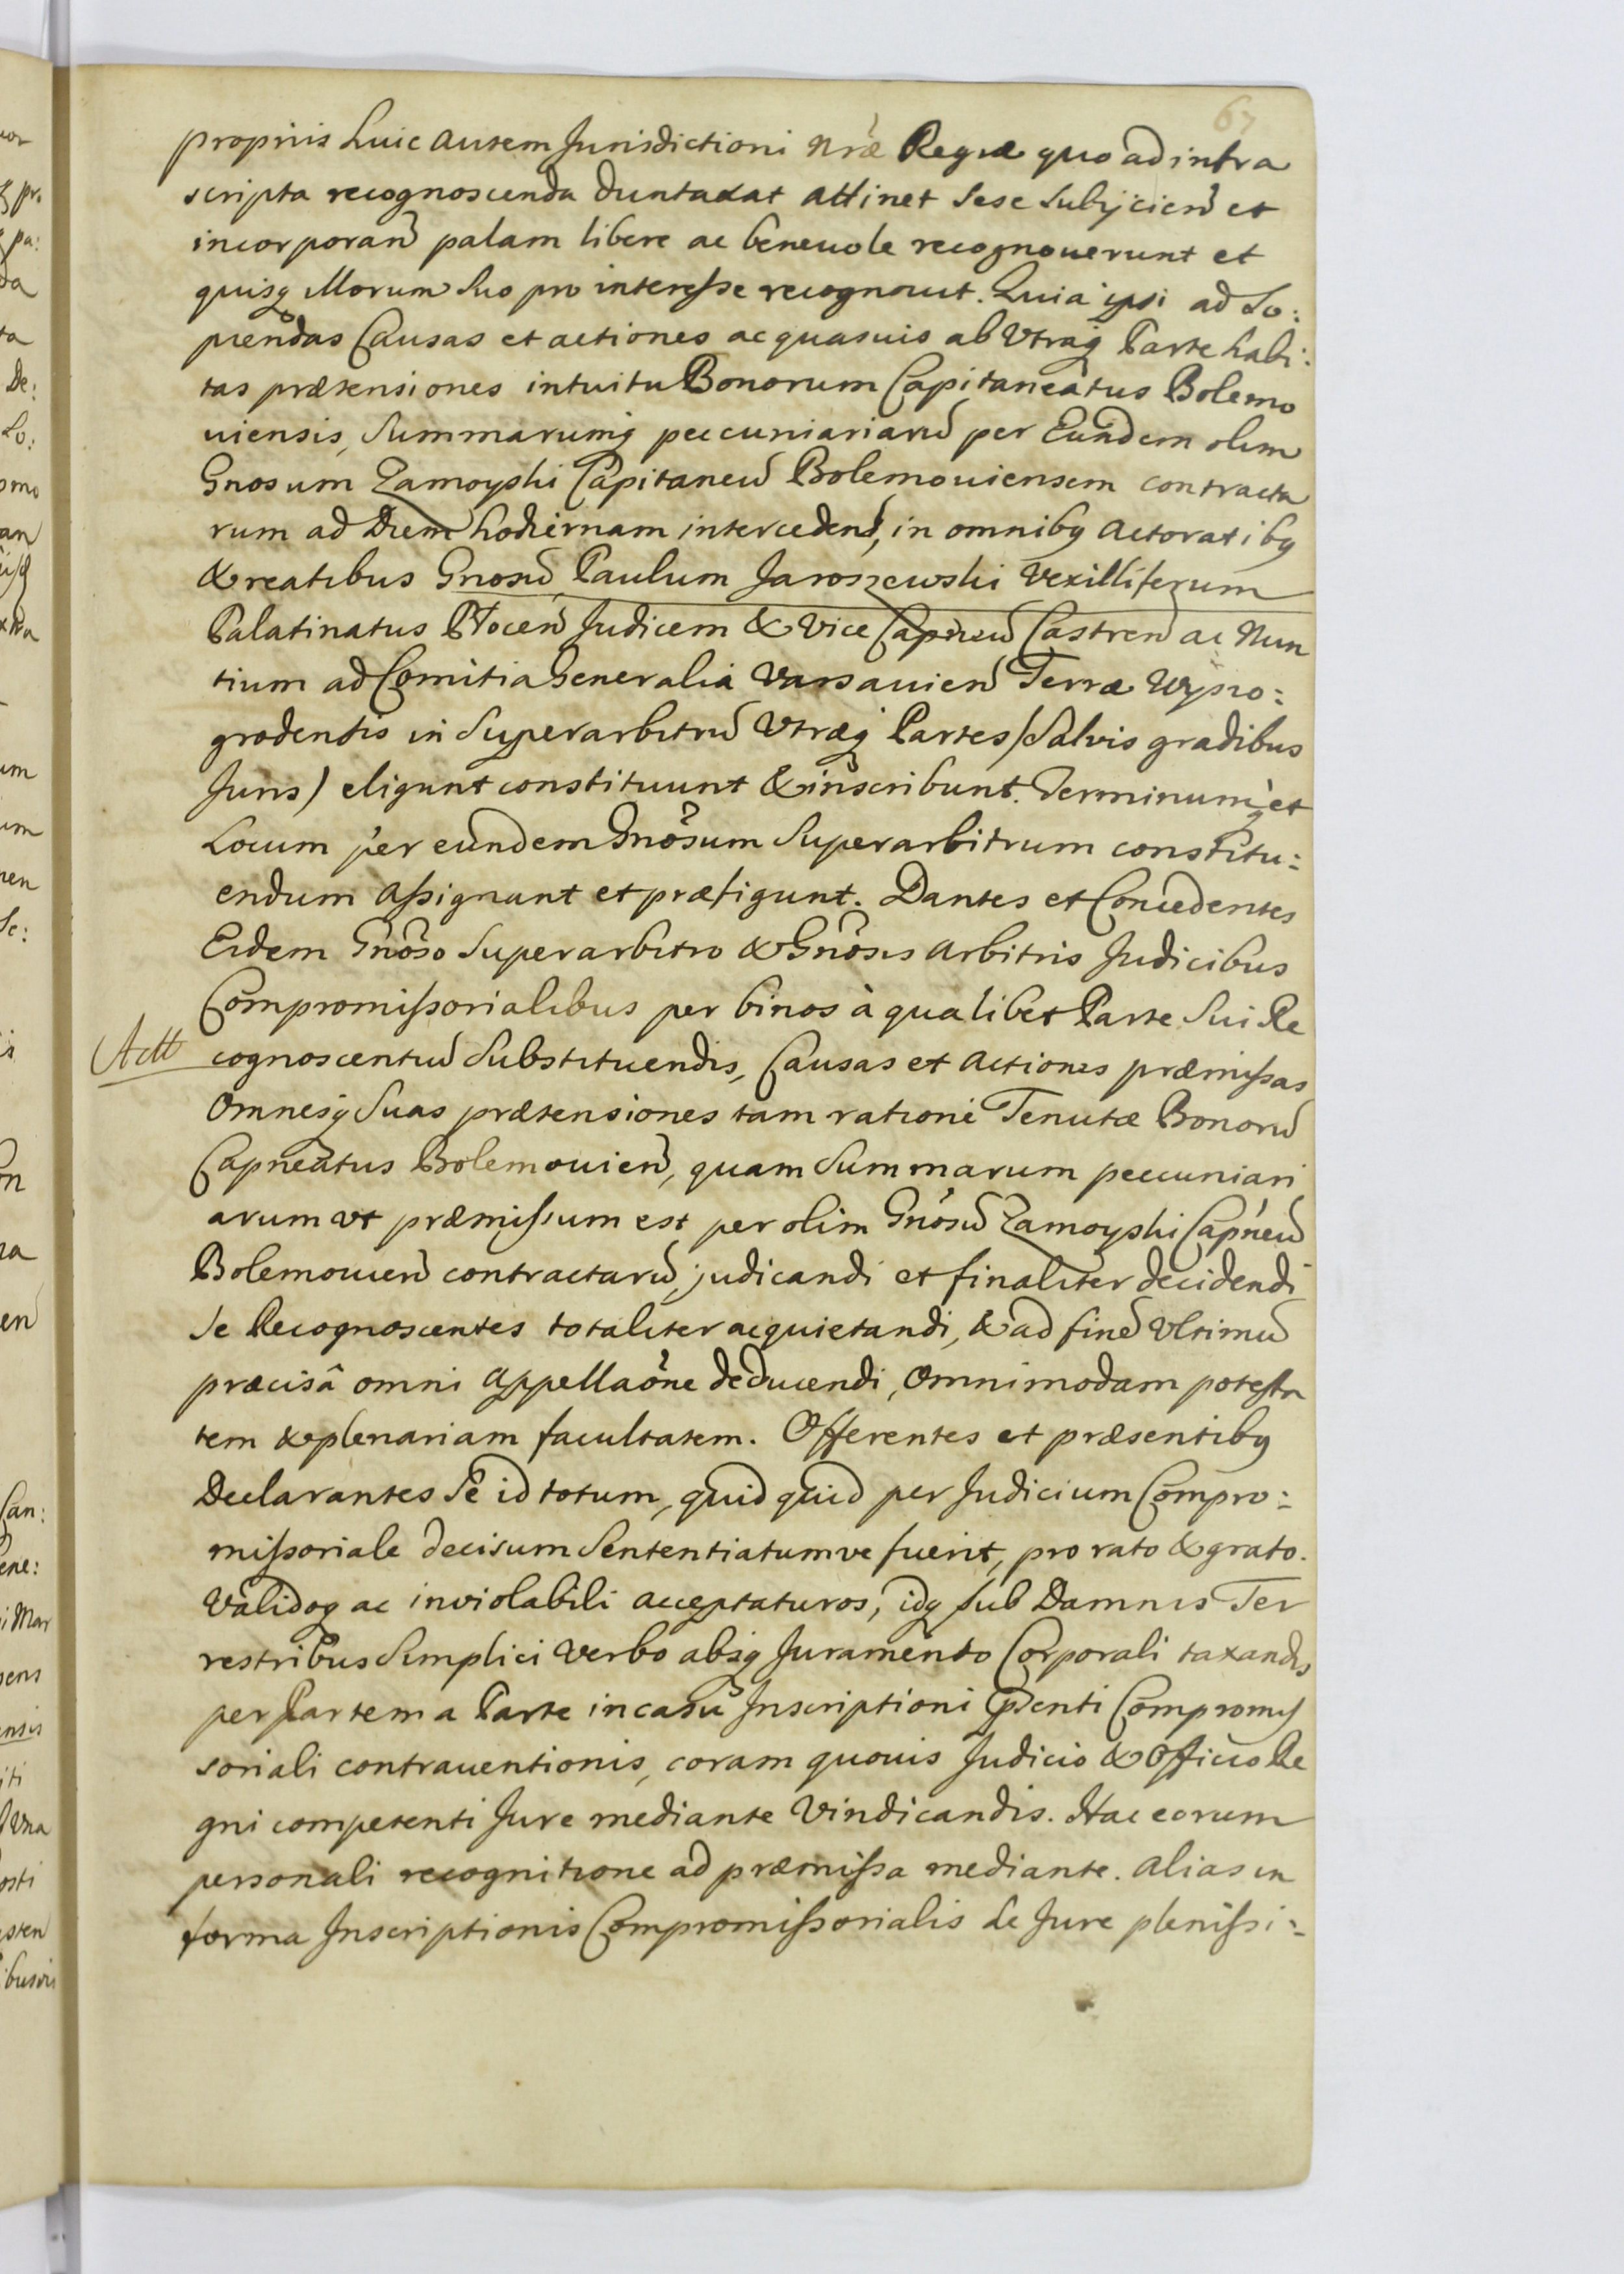 67
proprijs huic autem Jurisdictioni nrae Regiae quo ad infra
scripta recognoscenda duntaxat attinet sese subijcien et
incorporan palam libere ac beneuole recognouerunt et
quisq illorum suo pro interesse recognouit. Quia ipsi ad so:
piendas Causas et actiones ac quasuis ab Vtraq Parte habi:
tas praetensiones intuitu Bonorum Capitaneatus Bolemo
uiensis, Summarumq peccuniariarū per Eundem olim
Gnosum Zamoyski Capitaneū Bolemouiensem contracta
rum ad Diem hodiernam interceden, in omnibq actoratibq
& reatibus Gnosū Paulum Jaroszewski Vexilliferum
Palatinatus Plocen Judicem & Vice Capneū Castren ac Nun
tium ad Comitia Generalia Varsauien Terrae Wyszo:
grodensis in Superarbitrū Vtraeq Partes /Salvis gradibus
Juris) eligunt constituunt & inscribunt. Terminumq et
Locum per eundem Gnosum Superarbitrum constitu:
endum assignant et praefigunt. Dantes et Concedentes
Eidem Gnoso Superarbitro & Gnosis Arbitris Judicibus
Compromissorialibus per binos à qualibet Parte sui Re
Actt cognoscentiū Substituendis, Causas et Actiones praemissas
Omnesq Suas praetensiones tam ratione Tenutae Bonorū
Capneatus Bolemouien, quam Summarum peccuniari
arum vt praemissum est per olim Gnosū Zamoyski Capneū
Bolemouien contractarū, judicandi et finaliter decidendi
se Recognoscentes totaliter acquietandi, & ad finē Vltimū
praecisâ omni Appellaone deducendi, Omnimodam potesta
tem & plenariam facultatem. Offerentes et praesentibq
Declarantes Se id totum, quidquid per Judicium Compro:
missoriale decisum Sententiatumve fuerit, pro rato & grato.
Validoq ac inviolabili acceptaturos, idq sub Damnis Ter
restribus Simplici Verbo absq Juramento Corporali taxandis
per Partem a Parte in casu Inscriptioni Psenti Compromis
soriali contrauentionis, coram quouis Judicio & Officio Re
gni competenti Jure mediante Vindicandis. Hac eorum
personali recognitione ad praemissa mediante. Alias in
forma Inscriptionis Compromissorialis de Jure plenissi: